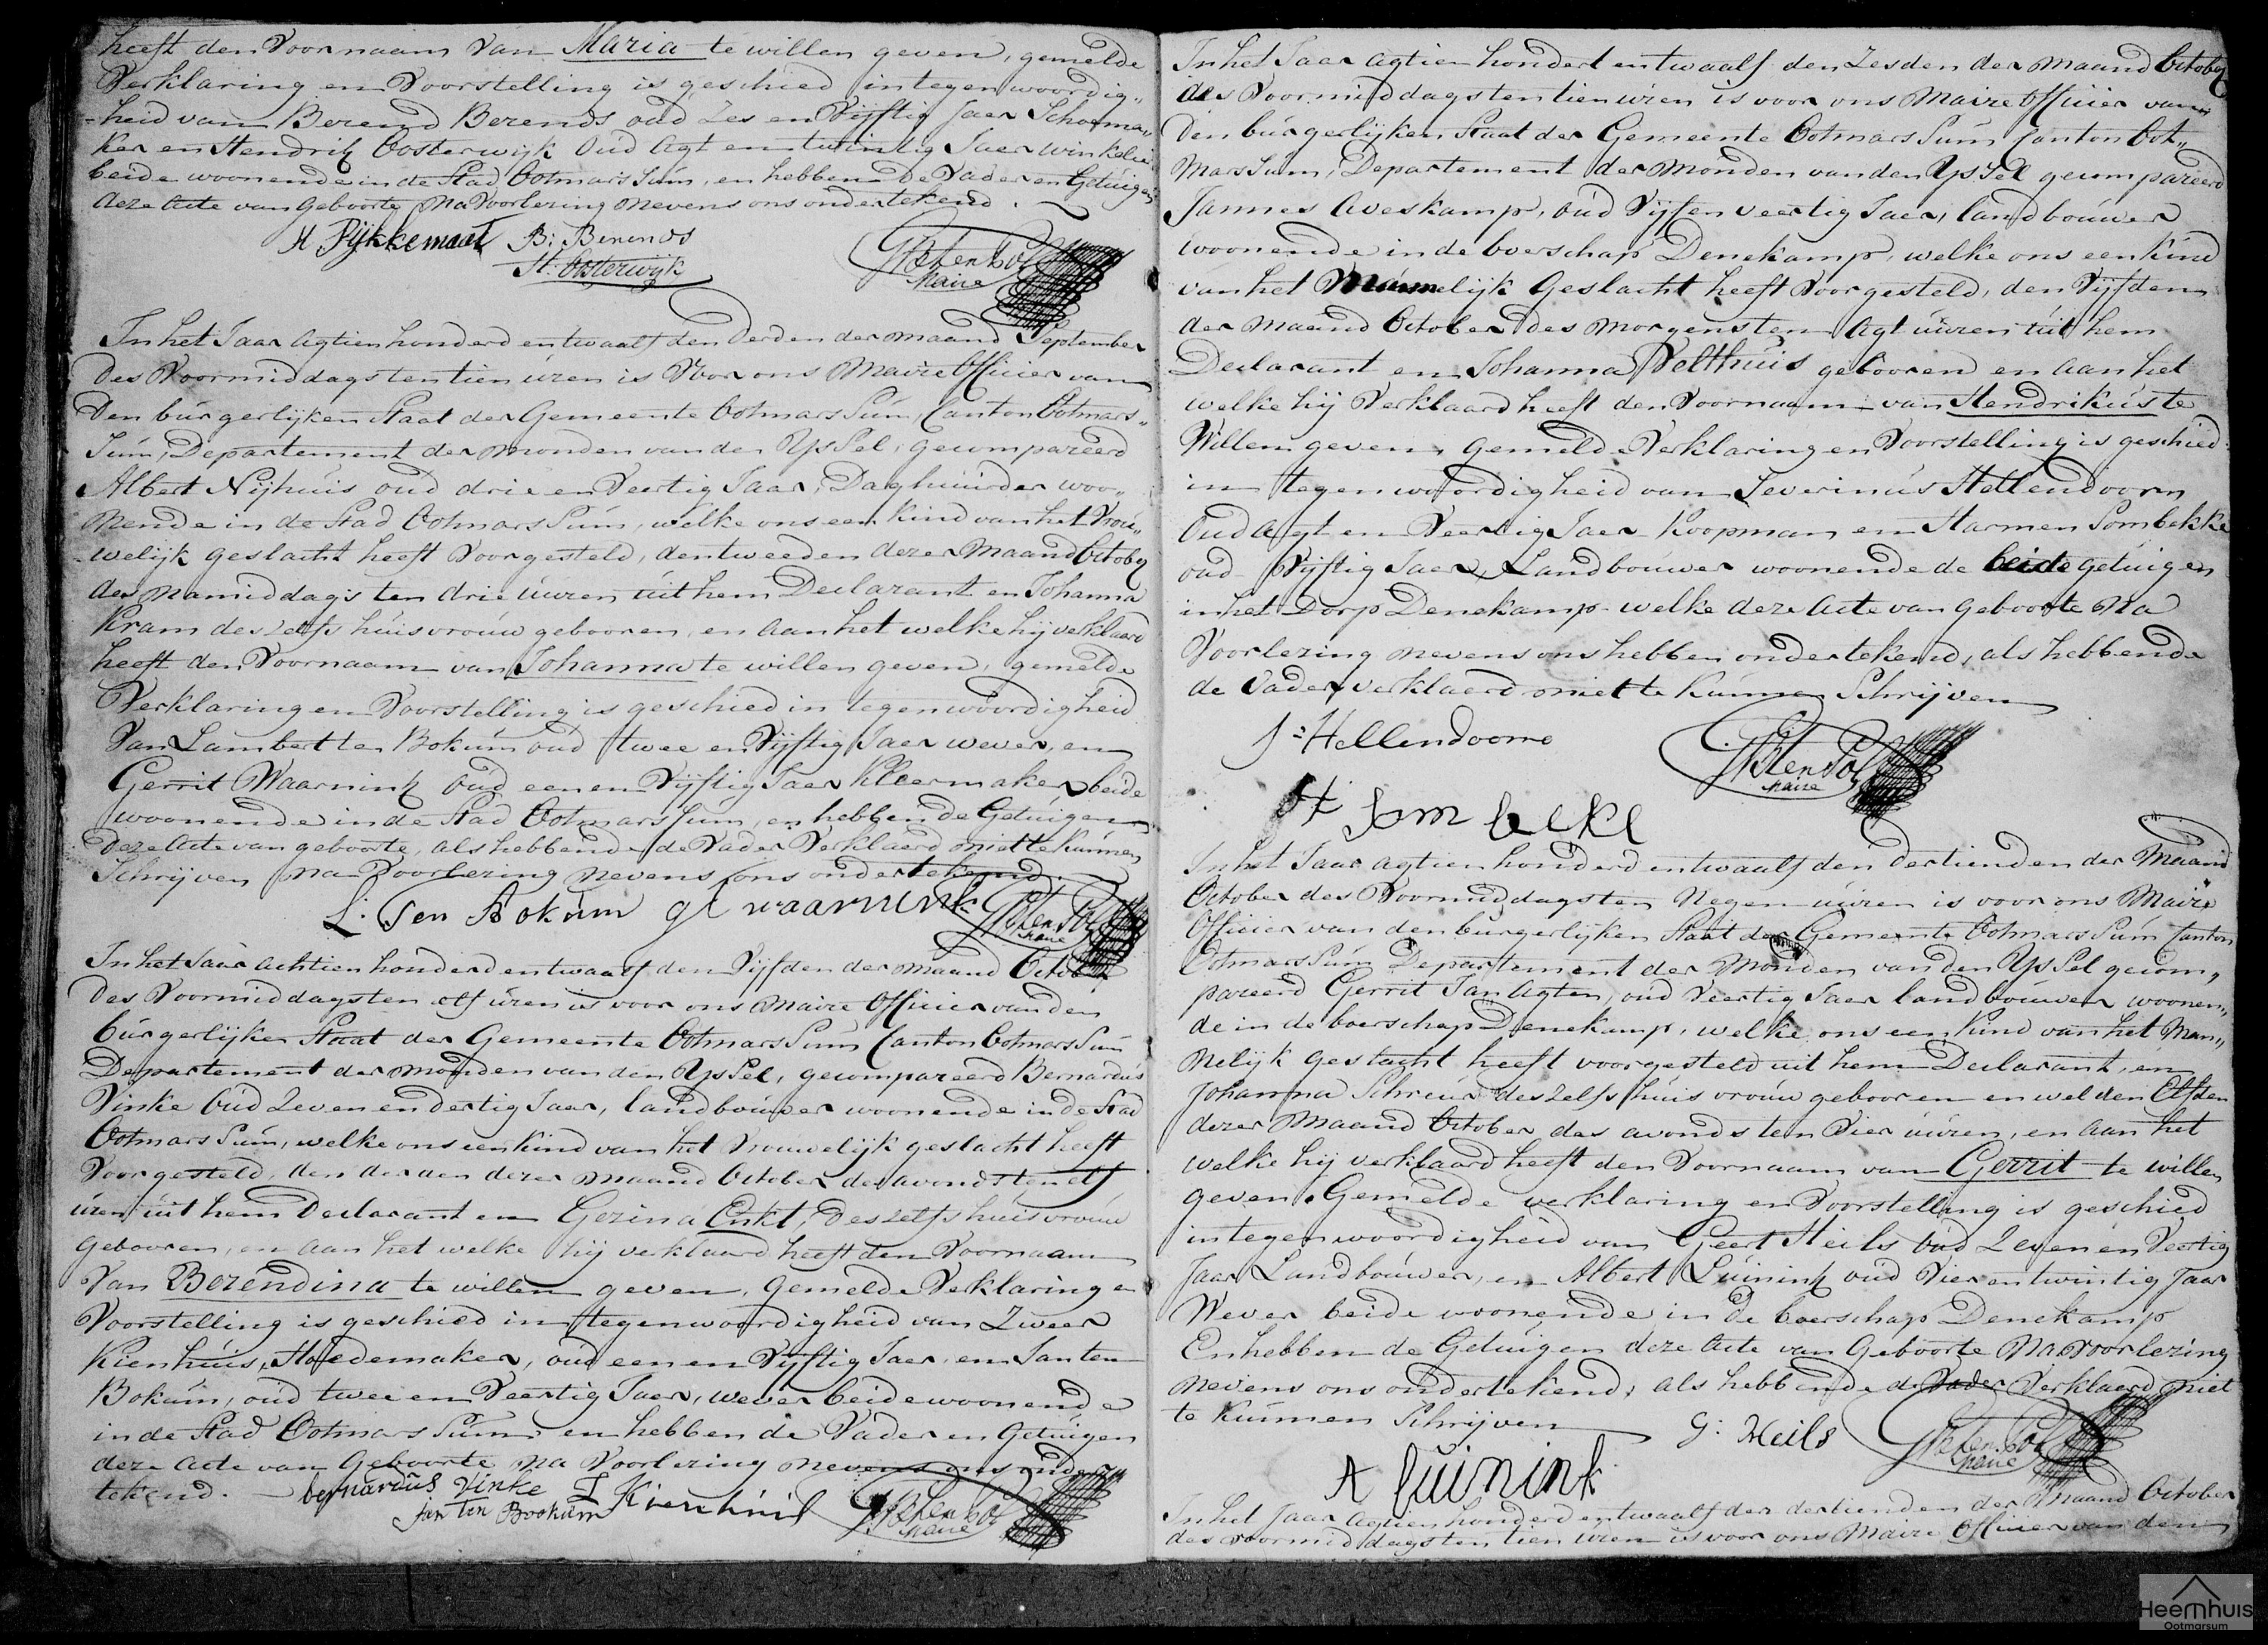 heeft den Voornaam Van Maria te willen geven, gemelde
Verklaring en Voorstelling is geschied in tegenwoordig„
-heid van Berend Berends oud Zes en Vijftig Jaer Schoema„
ker en Hendrik Oosterwijk Oud Agt en twintig Jaer winkelier
beide woonende in de Stad OotmarsSum, en hebben de Vader en Getuigen
deze Acte van Geboorte Na Voorlezing Nevens ons ondertekend.
H Pijkkemaat B: Berends
H: Oosterwijk
Maire
In het Jaar Agtien honderd en twaalf den Derden der maand September
des Voormiddags ten tien uren is Voor ons Maire Officier van
Den burgerlijken Staat der Gemeente OotmarsSum, Canton Ootmars„
Sum, Departement der Monden van den YsSel, gecompareerd
Albert Nijhuis oud drie en Veertig Jaar, Daghuurder woo„
nende in de Stad OotmarsSum, welke ons een kind van het Vrou„
-welijk geslacht heeft Voorgesteld, den tweeden dezer Maand October
des Namiddags ten drie uuren uit hem Declarant en Johanna
Kram deszelfs huisvrouw gebooren, en aan het welke hij verklaard
heeft den Voornaam van Johanna te willen geven, gemelde
Verklaring en Voorstelling is geschied in tegenwoordigheid
Van Lambert ten Bokum oud twee en Vijftig Jaer wever, en
Gerrit Waarnink Oud een en Vijftig Jaer Kleermaker beide
woonende in de Stad OotmarsSum, en hebben de Getuigen
Deze Acte van geboorte, als hebbende de Vader Verklaerd niet te Kunnen
Schrijven na Voorlezing Nevens ons ondertekend.
L: Ten Bokum g waarnink
Maire
In het Jaar Achtien honderd en twaalf den Vijfden der maand October
Des Voormiddags ten elf uren is voor ons Maire Officier van den
burgerlijken Staat der Gemeente OotmarsSum Canton OotmarsSum
Departement der Monden van den YsSel, gecompareerd Bernardus
Vinke Oud Zeven en dertig Jaar, landbouwer woonende in de Stad
OotmarsSum, welke ons een kind van het Vrouwelijk geslacht heeft
Voorgesteld, den derden dezer maand October des avonds ten elf
uren uit hem Declarant en Gezina Enkt, deszelfs huisvrouw
Gebooren, en aan het welke hij verklaard heeft den Voornaam
Van Berendina te willen geven, Gemelde Verklaring en
Voorstelling is geschied in tegenwoordigheid van Zweer
Kienhuis, Hoedemaker, oud een en Vijftig Jaer, en Jan ten
Bokum, oud twee en Veertig Jaer, wever beide woonende
in de Stad OotmarsSum en hebben de Vader en Getuigen
deze Acte van Geboorte na Voorlezing Nevens ons onder
tekend. bernardus Vinke Z Kienhuis
Jan Ten Bookum
Maire
In het Jaar Agtien hondert en twaalf den Zesden der Maand October
des Voormiddags ten tien uren is voor ons Maire Officier van
Den burgerlijken Staat der Gemeente OotmarsSum Canton Oot„
MarsSum, Departement der Monden van den YsSel gecompareerd
Jannes Aveskamp, oud Vijf en veertig Jaer, landbouwer
woonende in de boerschap Denekamp, welke ons een kind
van het Mannelijk Geslacht heeft Voorgesteld, den Vijfden
der Maand October des Morgens ten Agt uuren uit hem
Declarant en Johanna Velthuis gebooren en aan het
welke hij Verklaard heeft den Voornaam van Hendrikus te
Willen geven, gemelde Verklaring en Voorstelling is geschied
in tegenwoordigheid van Severinus Hellendoorn
Oud Agt en Veertig Jaer Koopman en Harmen Sombekke
oud Vijftig Jaer, Landbouwer woonende de beide getuigen
in het Dorp Denekamp welke deze Acte van Geboorte Na
Voorlezing nevens ons hebben ondertekend, als hebbende
de Vader verklaerd niet te kunnen Schrijven
S: Hellendoorn
Maire
H Sombekke
In het Jaar agtien honderd en twaalf den dertienden der Maand
October des Voormiddags ten Negen uuren is voor ons Maire
Officier van den burgerlijken Staat der Gemeente OotmarsSum Canton
OotmarsSum Departement der Monden van den YsSel gecom„
pareerd Gerrit Jan Agten, oud Veertig Jaer landbouwer woonen„
de in de boerschap Denekamp, welke ons een kind van het Man„
nelijk geslacht heeft voorgesteld uit hem Declarant, en
Johanna Schreur deszelfs huisvrouw gebooren en wel den Elfden
dezer Maand October des avonds ten Vier uuren, en aan het
welke hij verklaard heeft den Voornaam van Gerrit te willen
geven. Gemelde verklaring en Voorstelling is geschied
in tegenwoordigheid van Geert Heils Oud Zeven en Veertig
Jaar Landbouwer, en Albert Luinink oud Vier en twintig Jaar
Wever beide woonende in de boerschap Denekamp
En hebben de Getuigen deze Acte van Geboorte Na voorlezing
nevens ons ondertekend, als hebbende de Vader Verklaerd niet
te kunnen Schrijven
G: Heils
Maire
A Luinink
In het Jaar Agtien honderd en twaalf den dertienden der Maand October
des voormiddags ten tien uren is voor ons Maire Officier van den
Heemhuis
Ootmarsum